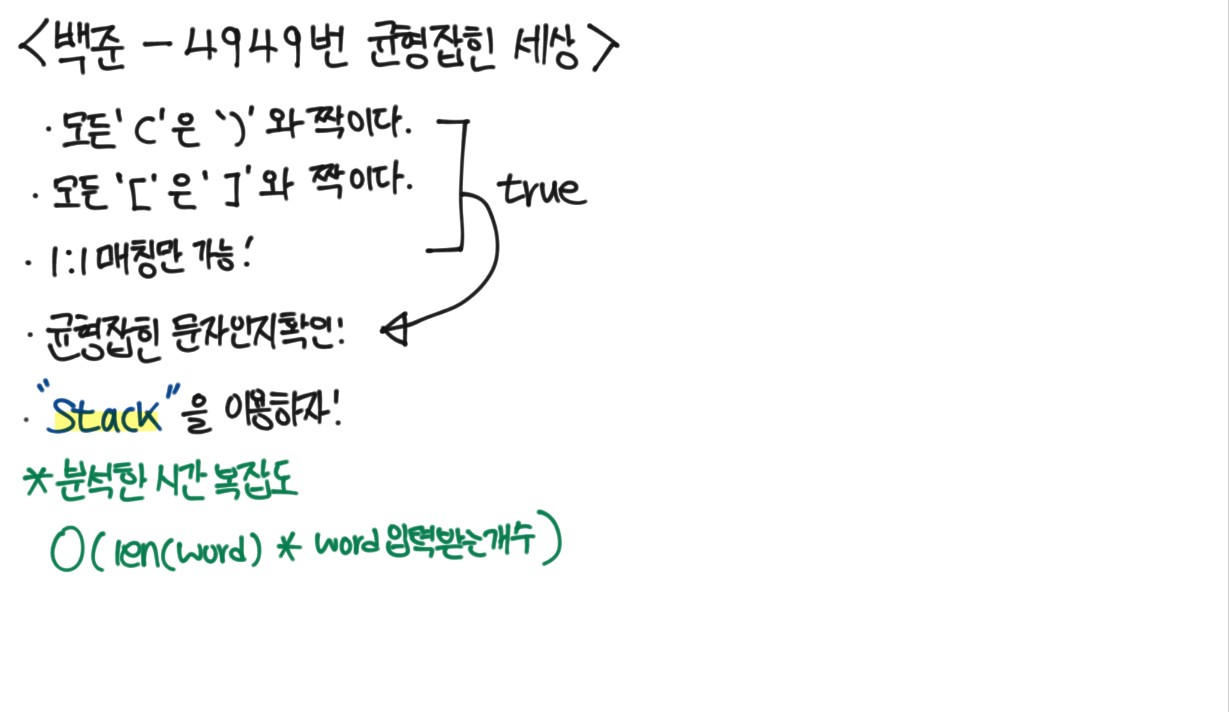 <백준 - 4949번 균형잡힌 세상>
· 모든 '(' 은 ')' 와 짝이다.
· 모든 '[' 은 ']' 와 짝이다.
true
· 1:1 매칭만 가능!
· 균형잡힌 문자인지확인!
· "Stack"을 이용하자!
* 분석한 시간 복잡도
O(len(word) * word 입력받는개수)